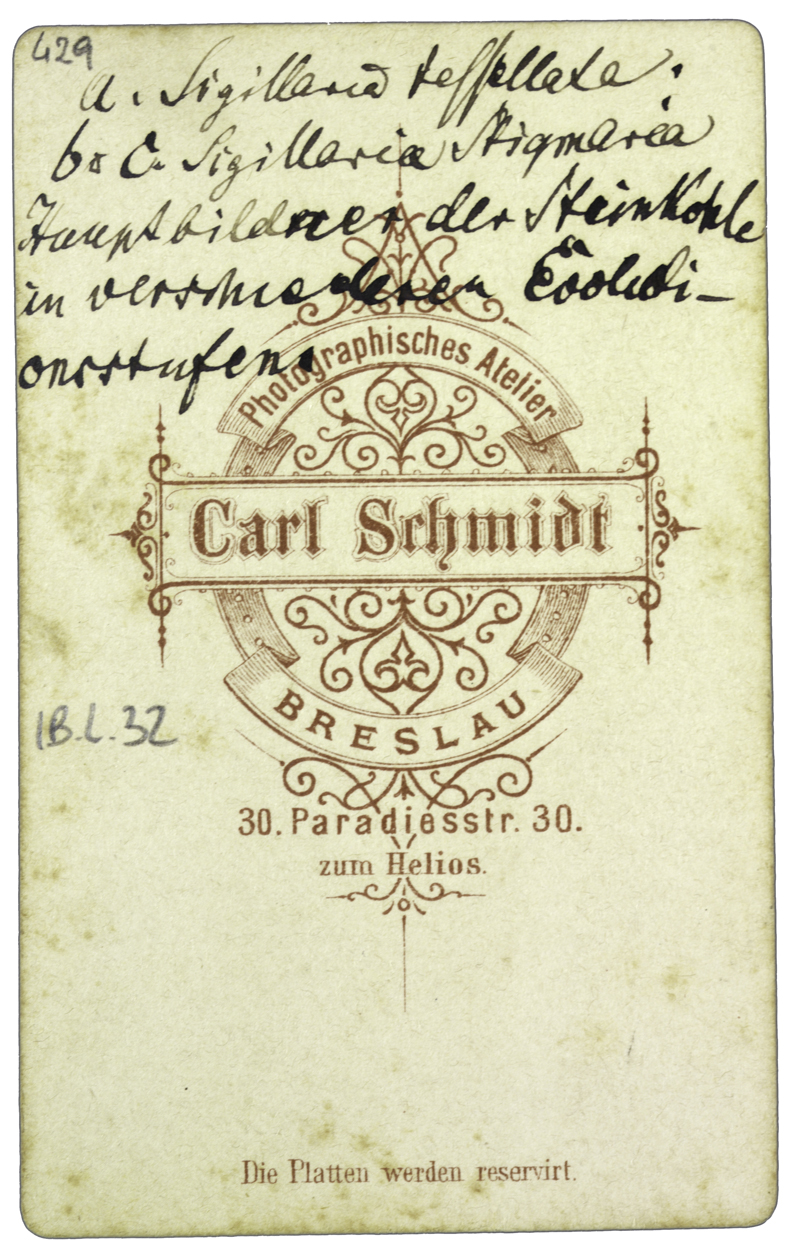 429
a. Sigillaria tessellata;
b & c. Sigillaria Stigmaria
Hauptbildner der Steinkohle
in verschiedenen
onsstufen.
Photographisches Atelier
Carl Schmidt
BRESLAU
IB.L.32
30. Paradiesstr. 30.
zum Helios.
Die Platten werden reservirt.